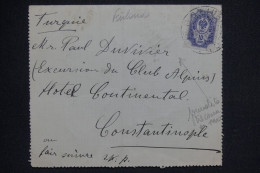 Turquie
Mr. Paul Duvivier
(Excursion du Club Alpin)
Hotel Continental
Constantinople
ou
faire suivre s.v.p.